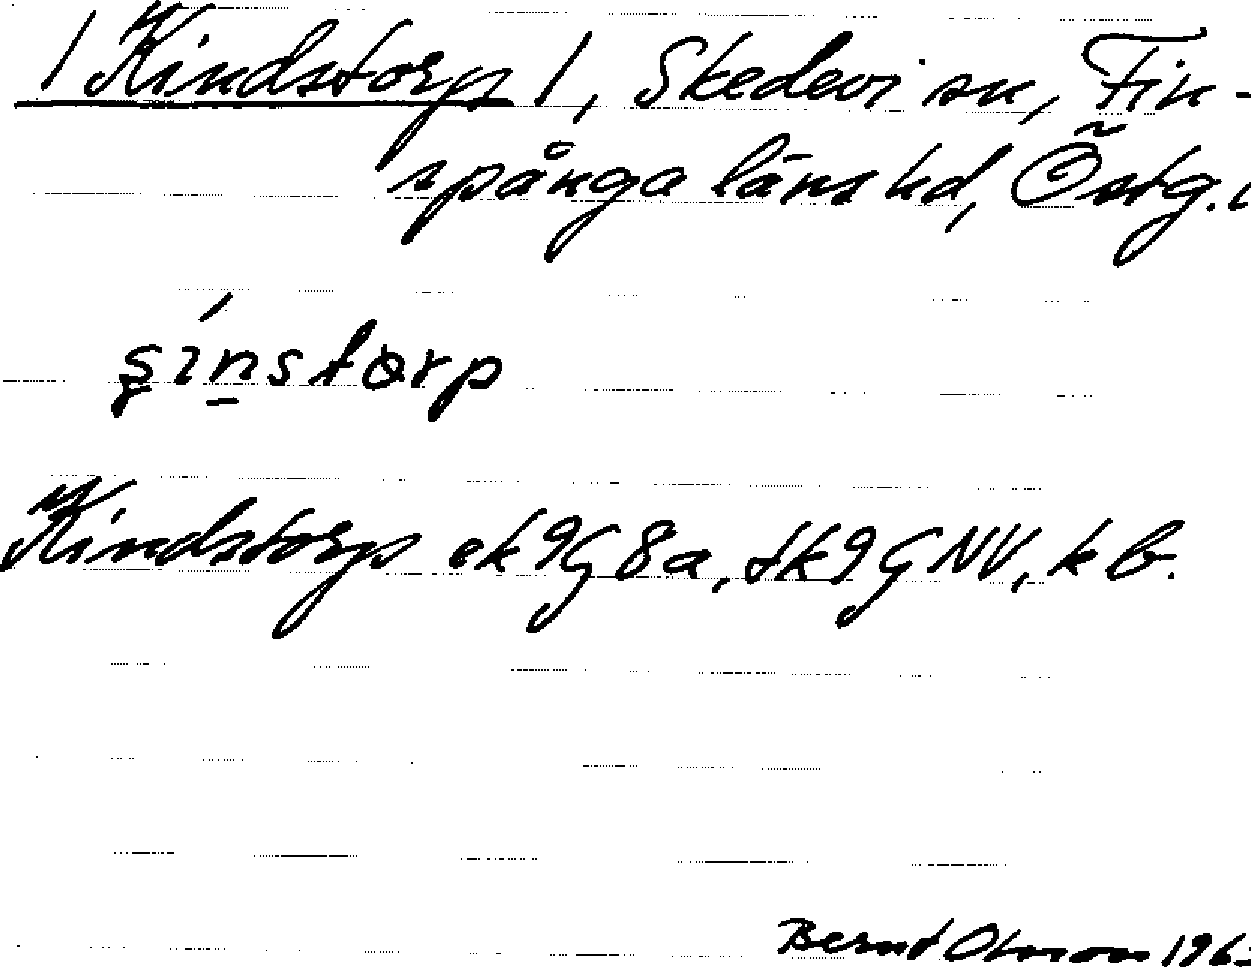 / Kindstorp /, Skedevi sn, Fin-
spånga läns hd, Östg.
ʂínstorp
Kindstorp ek 9G8a, tk 9G NV, kb.
Bernt Olmson 196